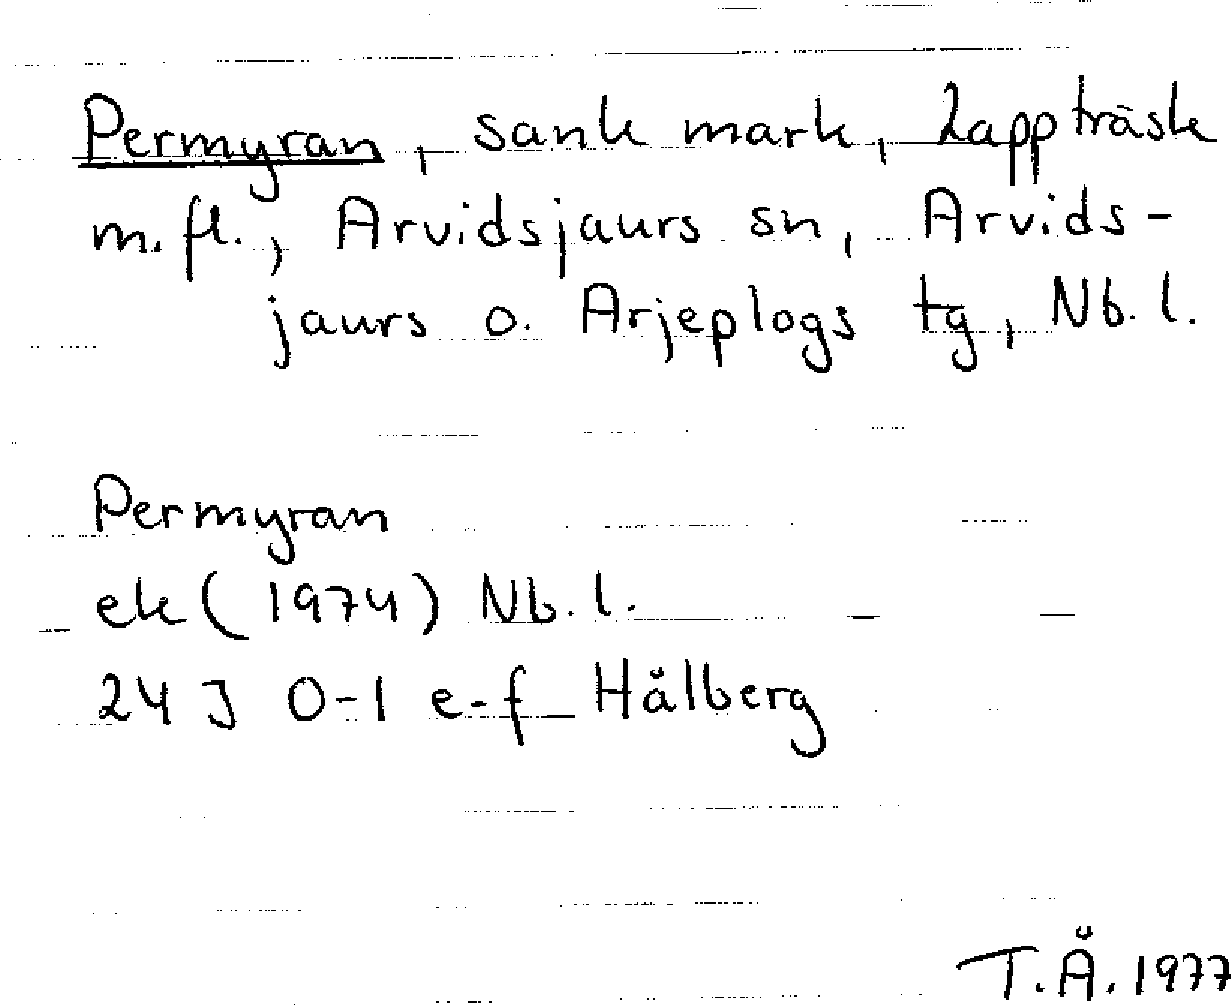 Permyran, sank mark, Lappträsk
m.fl., Arvidsjaurs sn, Arvids-
jaurs o. Arjeplogs tg, Nb.l.
Permyran
ek (1974) Nb.l.
24 J 0-1 e-f Hålberg
T.Å. 1977